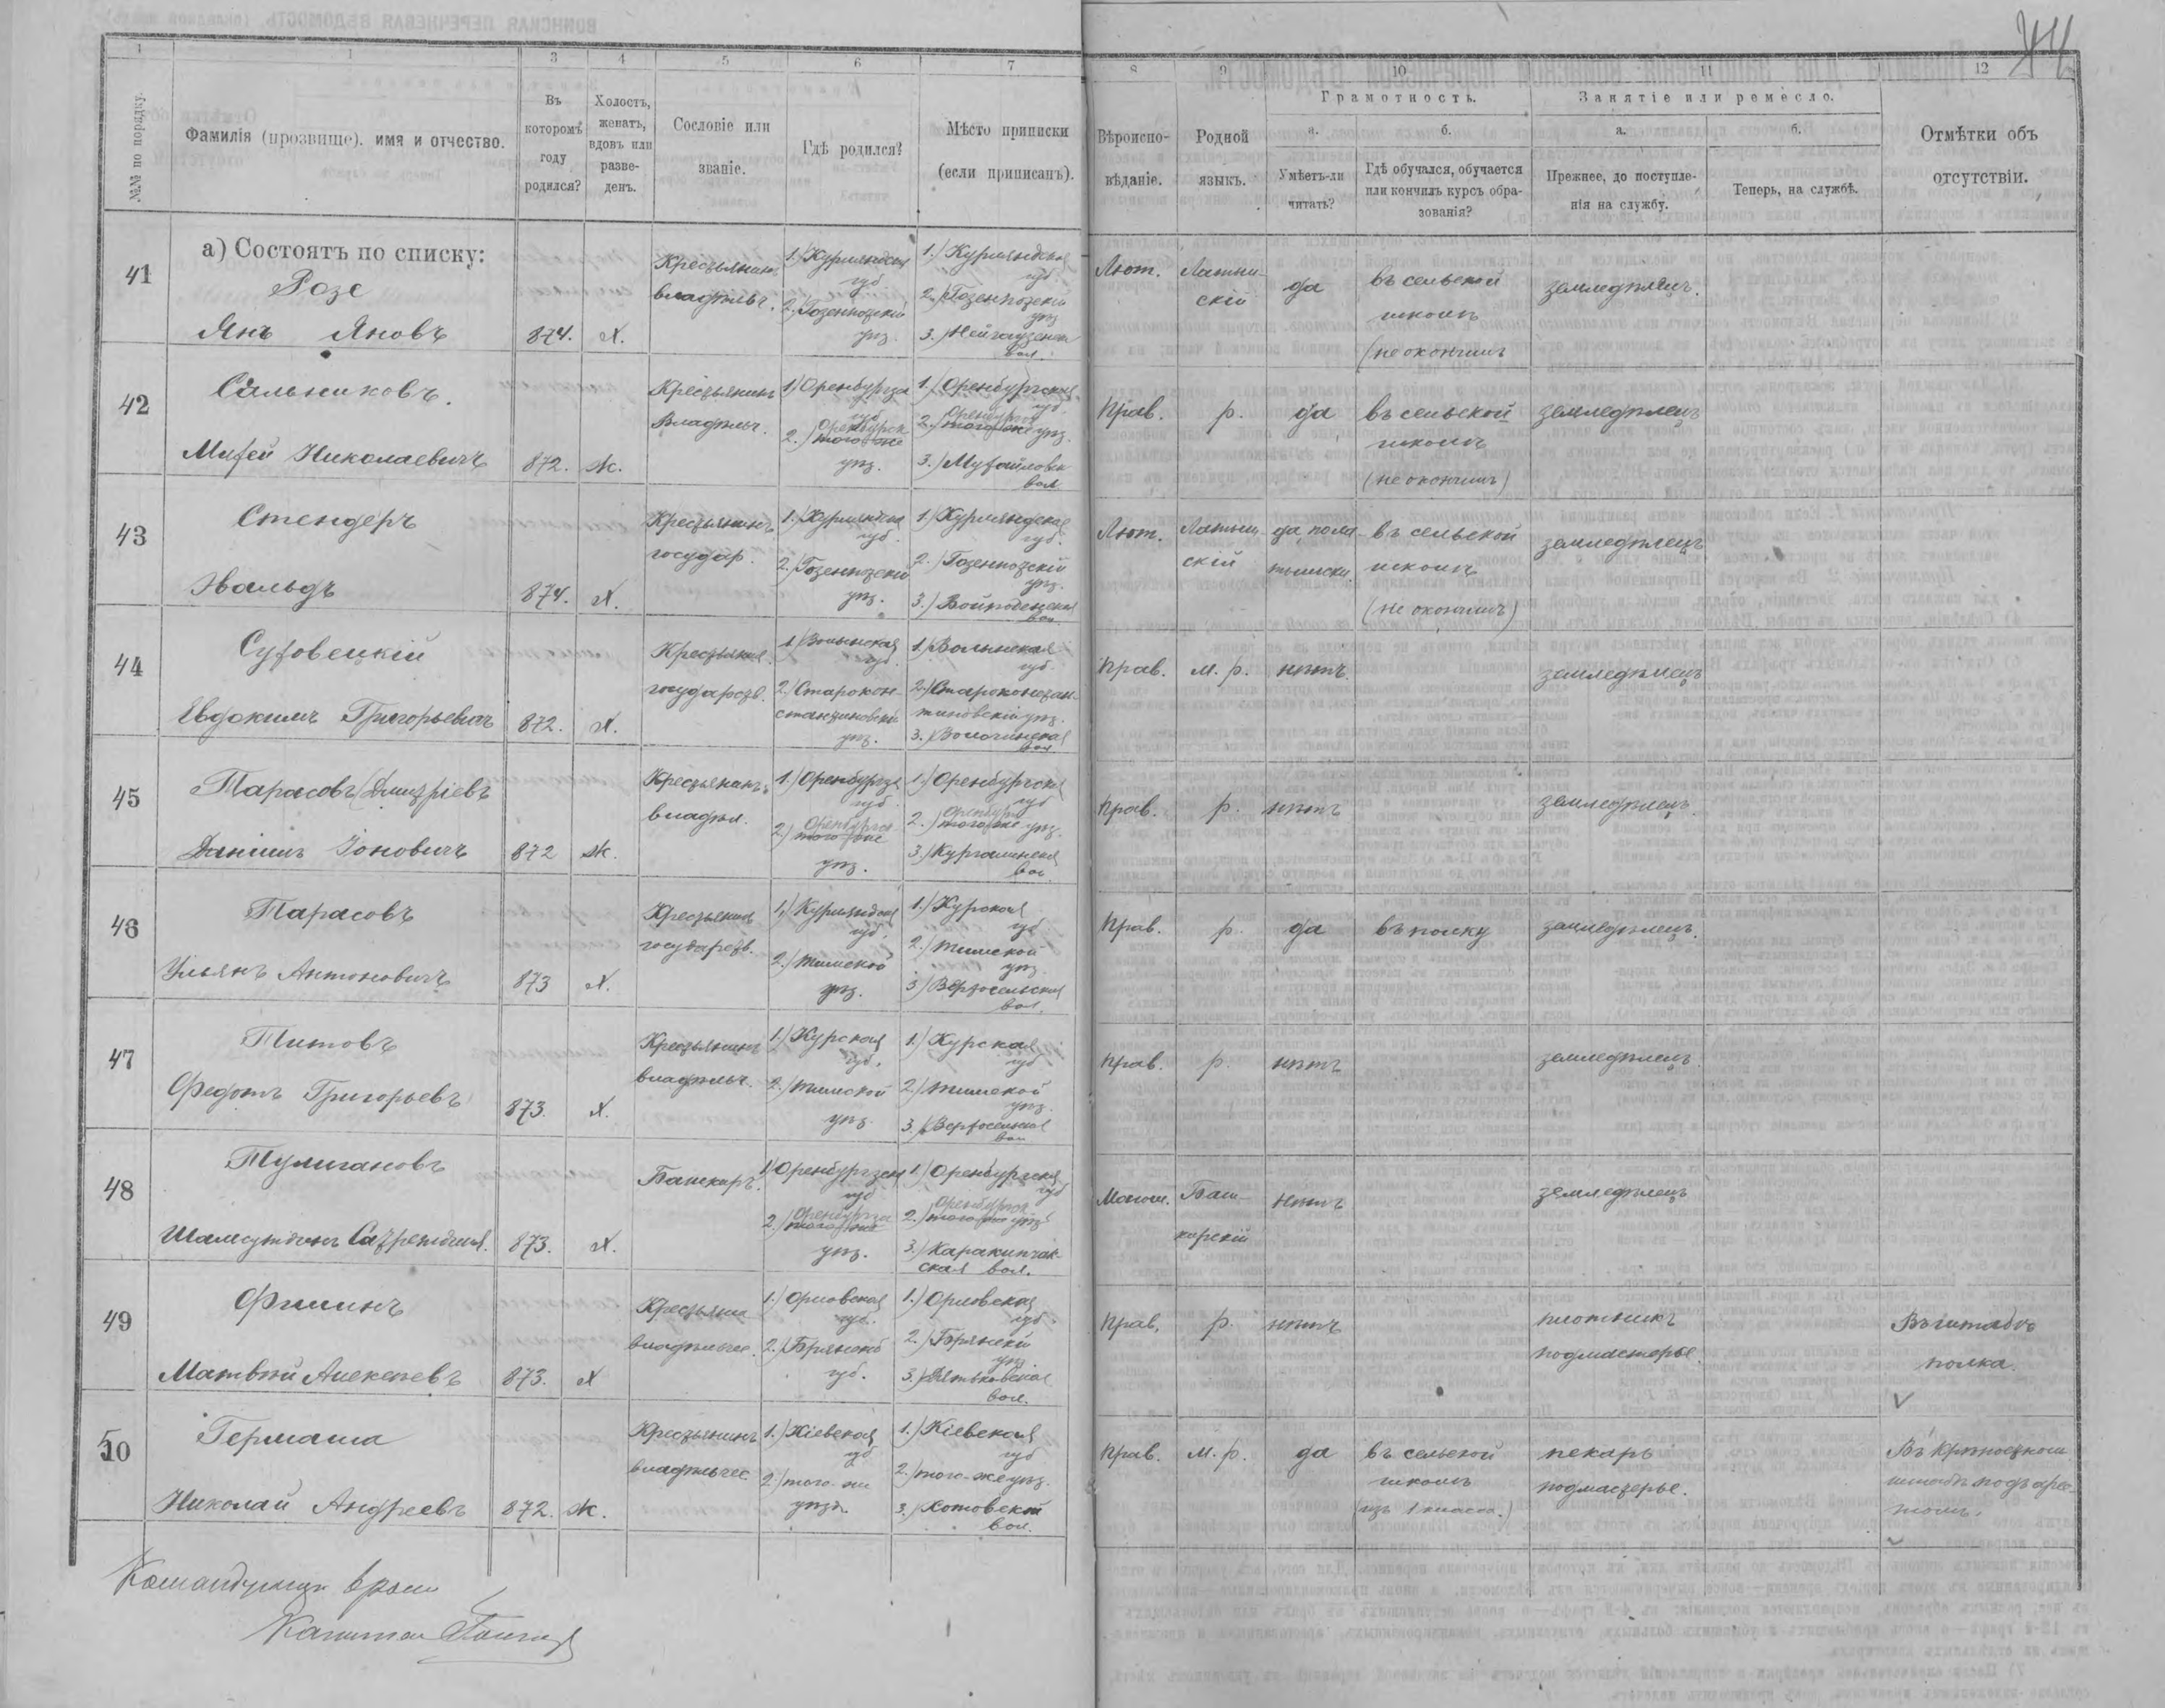 1 1 3 4 5 6 7 8 9 10 11 12
44
№№ по порядку.
Фамилія (прозвище), имя и отчество.
Въ которомъ году родился?
Холостъ, женатъ, вдовъ или разведенъ.
Сословіе или званіе.
Гдѣ родился?
Мѣсто приписки (если приписанъ).
Вѣроисповѣданіе.
Родной языкъ.
Грамотность.
а.
Умѣетъ-ли читать?
б.
Гдѣ обучался, обучается или кончилъ курсъ образованія?
Занятіе или ремесло.
а.
Прежнее, до поступленія на службу.
б.
Теперь, на службѣ.
Отмѣтки объ отсутствіи.
а) Состоятъ по списку:
41
Розе
Янъ Яновъ
874. Х.
Крестьянинъ
владѣльч.
1.) Курляндская
губ.
2.) Газенпотскій
уѣз.
1.) Курляндская
губ.
2.) Газенпотскій
уѣз.
3.) Нейгаузенск
вол.
Лют. Латыш-
скій
да
въ сельской
школѣ
(не окончилъ
земледѣлецъ.
42
Сальниковъ.
Михей Николаевичъ
872. Ж.
Крестьянинъ
Владѣльч.
1.) Оренбургска
губ.
2.) Оренбургск
того же
уѣз.
1.) Оренбургская
губ.
2.) Оренбургск
того же уѣз.
3.)
вол.
Прав. р. да
въ сельской
школѣ
(не окончилъ)
земледѣлецъ
43
Стендеръ
Эвальдъ
874. Х.
Крестьянинъ
государ.
1.) Курляндская
губ.
2.) Газенпотскій
уѣз.
1.) Курляндская
губ.
2.) Газенпотскій
уѣз.
3.)
вол.
Лют. Латыш-
скій
да, пола-
тышски
въ сельской
школѣ
(не окончилъ)
земледѣлецъ
44
Суховецкій
Евдокимъ Григорьевичъ
872. Х.
Крестьянин
государств.
1.) Волынская
губ.
2.) Старокон-
стантиновскій
уѣз.
1.) Волынская
губ.
2.) Староконстан-
тиновскій уѣз.
3.) Волочиская
вол.
Прав. м. р. нѣтъ.
земледѣлецъ
45
Тарасовъ (Дмитріевъ
Даніилъ Іоновичъ
872 Ж.
Крестьянинъ
владѣл.
1.) Оренбургска
губ.
2.) Оренбургск
того же
уѣз.
1.) Оренбургская
губ
2.) Оренбургск
того же уѣз.
3.)
вол.
Прав. р. нѣтъ
земледѣлецъ.
46
Тарасовъ
Ульянъ Антоновичъ
873 Х.
Крестьянинъ
государств.
1.) Курляндская
губ.
2.) Тимской
уѣз.
1.) Курская
губ.
2.) Тимской
уѣз.
3.) Верхосельская
вол.
Прав. р. да
въ полку
земледѣлецъ.
47
Титовъ
Федотъ Григорьевъ
873. Х.
Крестьянинъ
владѣльч.
1.) Курская
губ.
2.) Тимской
уѣз.
1.) Курская
губ
2.) Тимской
уѣз.
3.) Верхосельская
вол
Прав. р. нѣтъ
земледѣлецъ
48
Тулигановъ
873. Х.
Башкиръ.
1.) Оренбургская
губ
2.) Оренбургск
того же
уѣз.
1.) Оренбургская
губ
2.) Оренбургск
того же уѣз.
3.) Каракипчак-
ская вол.
Магом. Баш-
кирскій
нѣтъ
земледѣлецъ
49
Филинъ
Матвѣй Алексѣевъ
873. Х
Крестьянин
владѣльчес.
1.) Орловская
губ.
2.) Брянской
губ.
1.) Орловская
губ.
2.) Брянскій
уѣз.
3.) Дятьковская
вол.
Прав. р. нѣтъ
плотникъ
подмастерье.
Въ штабѣ
полка.
50
Гермаша
Николай Андреевъ
872. Ж.
Крестьянинъ
владѣльчес
1.) Кіевская
губ
2.) того-же
уѣзд.
1.) Кіевская
губ
2.) того-же уѣз.
3.) Хотовской
вол.
Прав. м. р. да
въ сельской
школѣ
(изъ 1 класса.)
пекарь
подмастерье.
Въ Крѣпостномъ
штабѣ подъ арес-
томъ.
Командующій ротою
Капитан